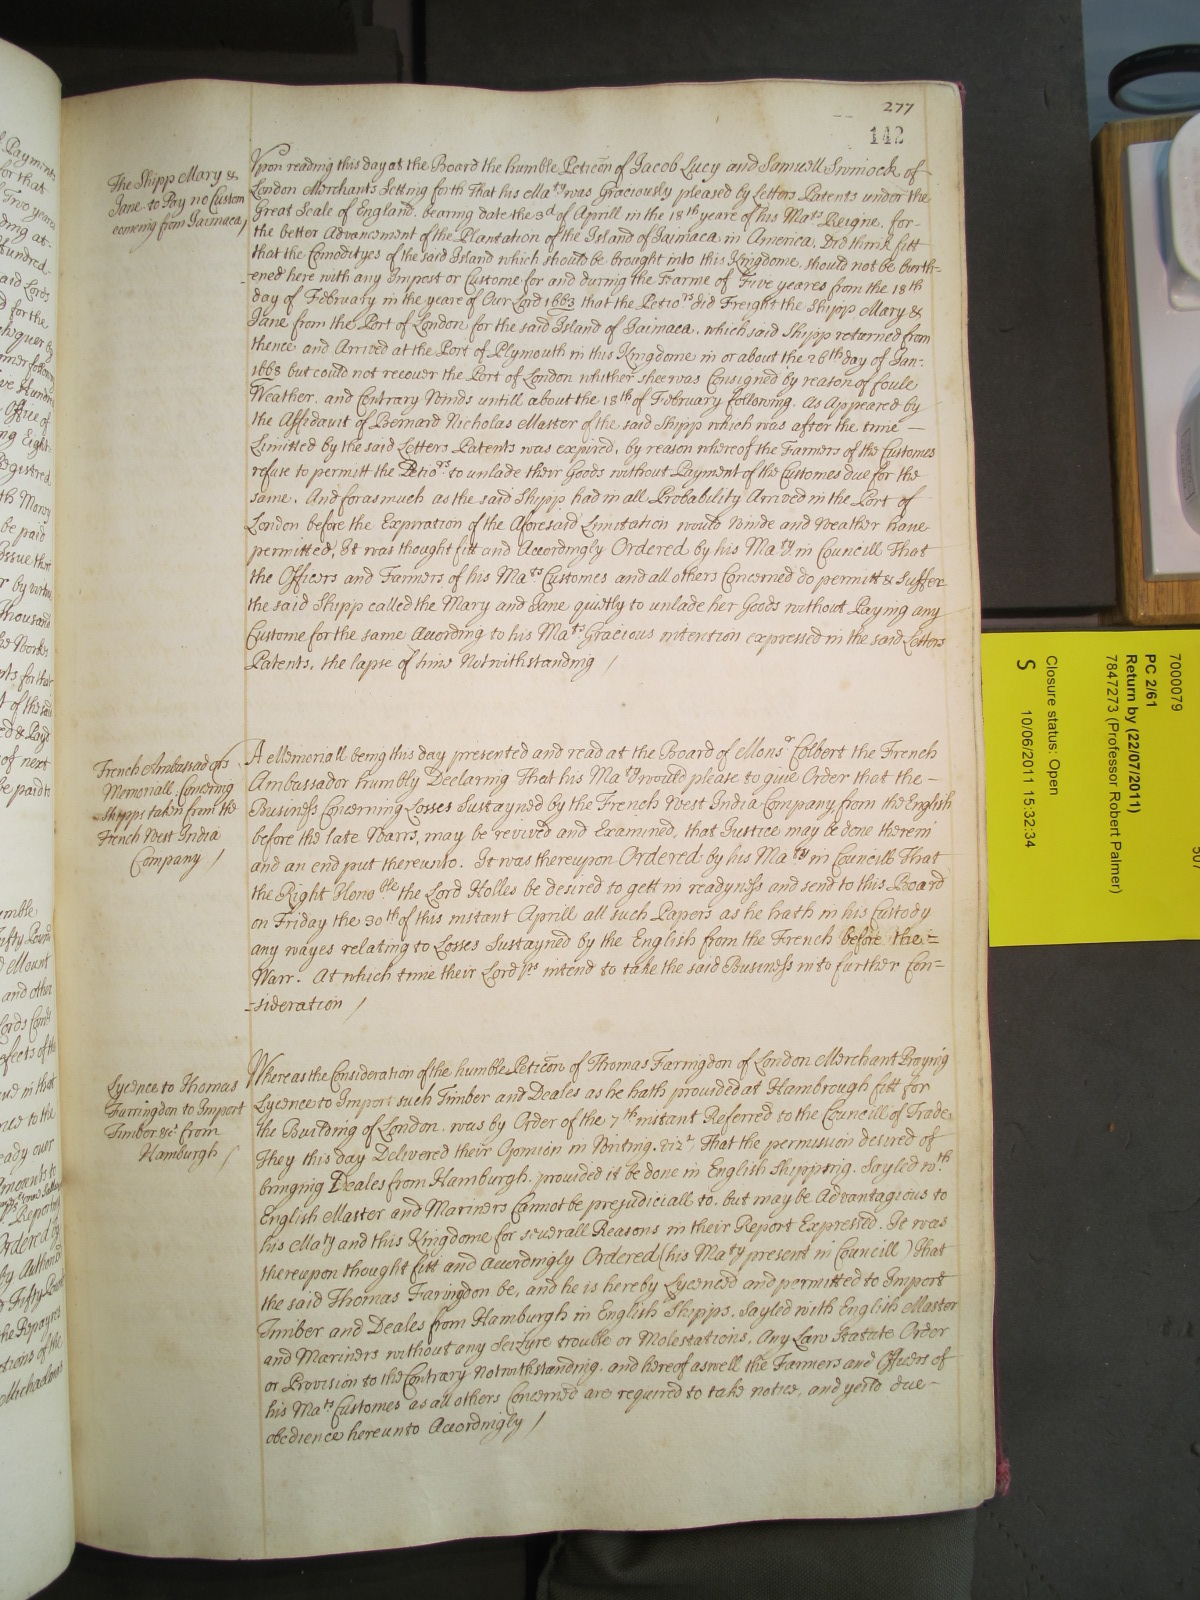 277
142
The Shipp Mary &
Jane to Pay no Custom
coming from Jaimaca /
Vpon reading this day at the Board the humble Peticõn of Jacob Lucy and Samuell of
London Merchants Setting forth That his Maty was Graciously pleased by Letters Patents under the
Great Seale of England, bearing date the 3d of Aprill in the 18th yeare of his Mats Reigne, for-
the better Advancement of the Plantation of the Island of Jaimaca in America, Did think fitt
that the Comodityes of the said Island which should be brought into this Kingdome, should not be burth-
-ened here with any Impost or Custome for and during the Farme of Five yeares from the 18th
day of February in the yeare of Our Lord 1663 that the Petiors did Freight the Shipp Mary &
Jane from the Port of London for the said Island of Jaimaca, which said Shipp returned from
thence and Arrived at the Port of Plymouth in this Kingdome in or about the 26th day of Jan:
1668 but could not recover the Port of London whither shee was Consigned by reason of foule
Weather, and Contrary Winds untill about the 18th of February following, As Appeared by
the Affidavit of Bernard Nicholas Master of the said Shipp which was after the time —
Limitted by the said Letters Patents was expired, by reason whereof the Farmers of the Customes
refuse to permitt the Petiors to unlade their Goods without Payment of the Customes due for the
same, And forasmuch as the said Shipp had in all Probability Arrived in the Port of
London before the Expiration of the Aforesaid Limitation would Winde and Weather have
permitted, It was thought fitt and Accordingly Ordered by his Maty in Councill That
the Officers and Farmers of his Mats Customes and all others Concerned do permitt & suffer
the said Shipp called the Mary and Jane quietly to unlade her Goods without Paying any
Custome for the same According to his Mats Gracious intention expressed in the said Letters
Patents, the lapse of time Notwithstanding /
French Ambassadors
Memoriall Concerning
Shipps taken from the
French West India
Company /
A Memoriall being this day presented and read at the Board of Monsr Colbert the French
Ambassador humbly Declaring That his Maty would please to give Order that the -
Business Concerning Losses Sustayned by the French West India Company from the English
before the late Warrs, may be revived and Examined, that Justice may be done therein
and an end put thereunto. It was thereupon Ordered by his Maty in Councill That
the Right Honoble the Lord Holles be desired to gett in readyness and send to this Board
on Friday the 30th of this instant Aprill all such Papers as he hath in his Custody
any wayes relating to Losses Sustayned by the English from the French before the =
Warr. At which time their Lordps intend to take the said Business into further Con=
-sideration /
Lycence to Thomas
Farringdon to Import
Timber &c from
Hamburgh /
Whereas the Consideration of the humble Peticõn of Thomas Farringdon of London Merchant Praying
Lycence to Import such Timber and Deales as he hath provided at Hambrough fitt for
the Building of London, was by Order of the 7th instant Referred to the Councill of Trade
They this day Delivered their Opinion in Writing, vizt, That the permission desired of
bringing Deales from Hamburgh, provided it be done in English Shipping, Sayled wth
English Master and Mariners Cannot be prejudiciall to, but may be Advantagious to
his Maty and this Kingdome for severall Reasons in their Report Expressed. It was
thereupon thought fitt and Accordingly Ordered (his Maty present in Councill) That
the said Thomas Faringdon be, and he is hereby Lycenced and permitted to Import
Timber and Deales from Hamburgh in English Shipps, Sayled with English Master
and Mariners without any Seizure trouble or Molestations, Any Law Statute Order
or Provision to the Contrary Notwithstanding, and hereof aswell the Farmers and Officers of
his Mats Customes as all others Concerned are required to take notice, and yeild due -
obedience hereunto Accordingly /
7000079
PC 2/61
Return by (22/07/2011)
7847273 (Professor Robert Palmer)
Closure status: Open
S 10/06/2011 15:32:34